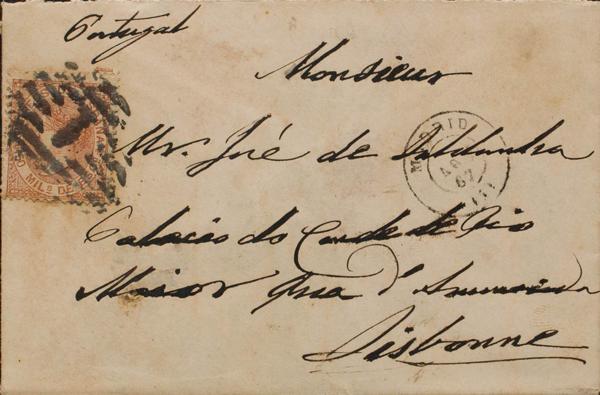 Portugal
Monsieur
Mr. José de Saldanha
Palacio do Conde de Rio
Maior Rua d'Anunciada
Lisbonne
MADRID
67
MIL.S DE